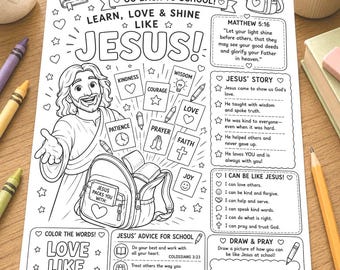 GO BACK TO SCHOOL!
LEARN, LOVE & SHINE
LIKE
JESUS!
KINDNESS
COURAGE
WISDOM
LOVE
PATIENCE
PRAYER
FAITH
JOY
JESUS
MATTHEW 5:16
"Let your light shine
before others, that they
may see your good deeds
and glorify your Father
in heaven."
JESUS' STORY
Jesus came to show us God's
love.
He taught with wisdom
and spoke truth.
He was kind to everyone–
even when it was hard.
He helped others and
never gave up.
He loves YOU and is
always with you!
I CAN BE LIKE JESUS!
I can love others.
I can be kind and forgive.
I can help and serve.
I can speak kind words.
I can do what is right.
I can pray and trust God!
COLOR THE WORDS!
LOVE
LIKE
JESUS' ADVICE FOR SCHOOL
Do your best and work with
all your heart.
COLOSSIANS 3:23
Treat others the way you
DRAW & PRAY
Draw a picture of how you can
be like Jesus at school!